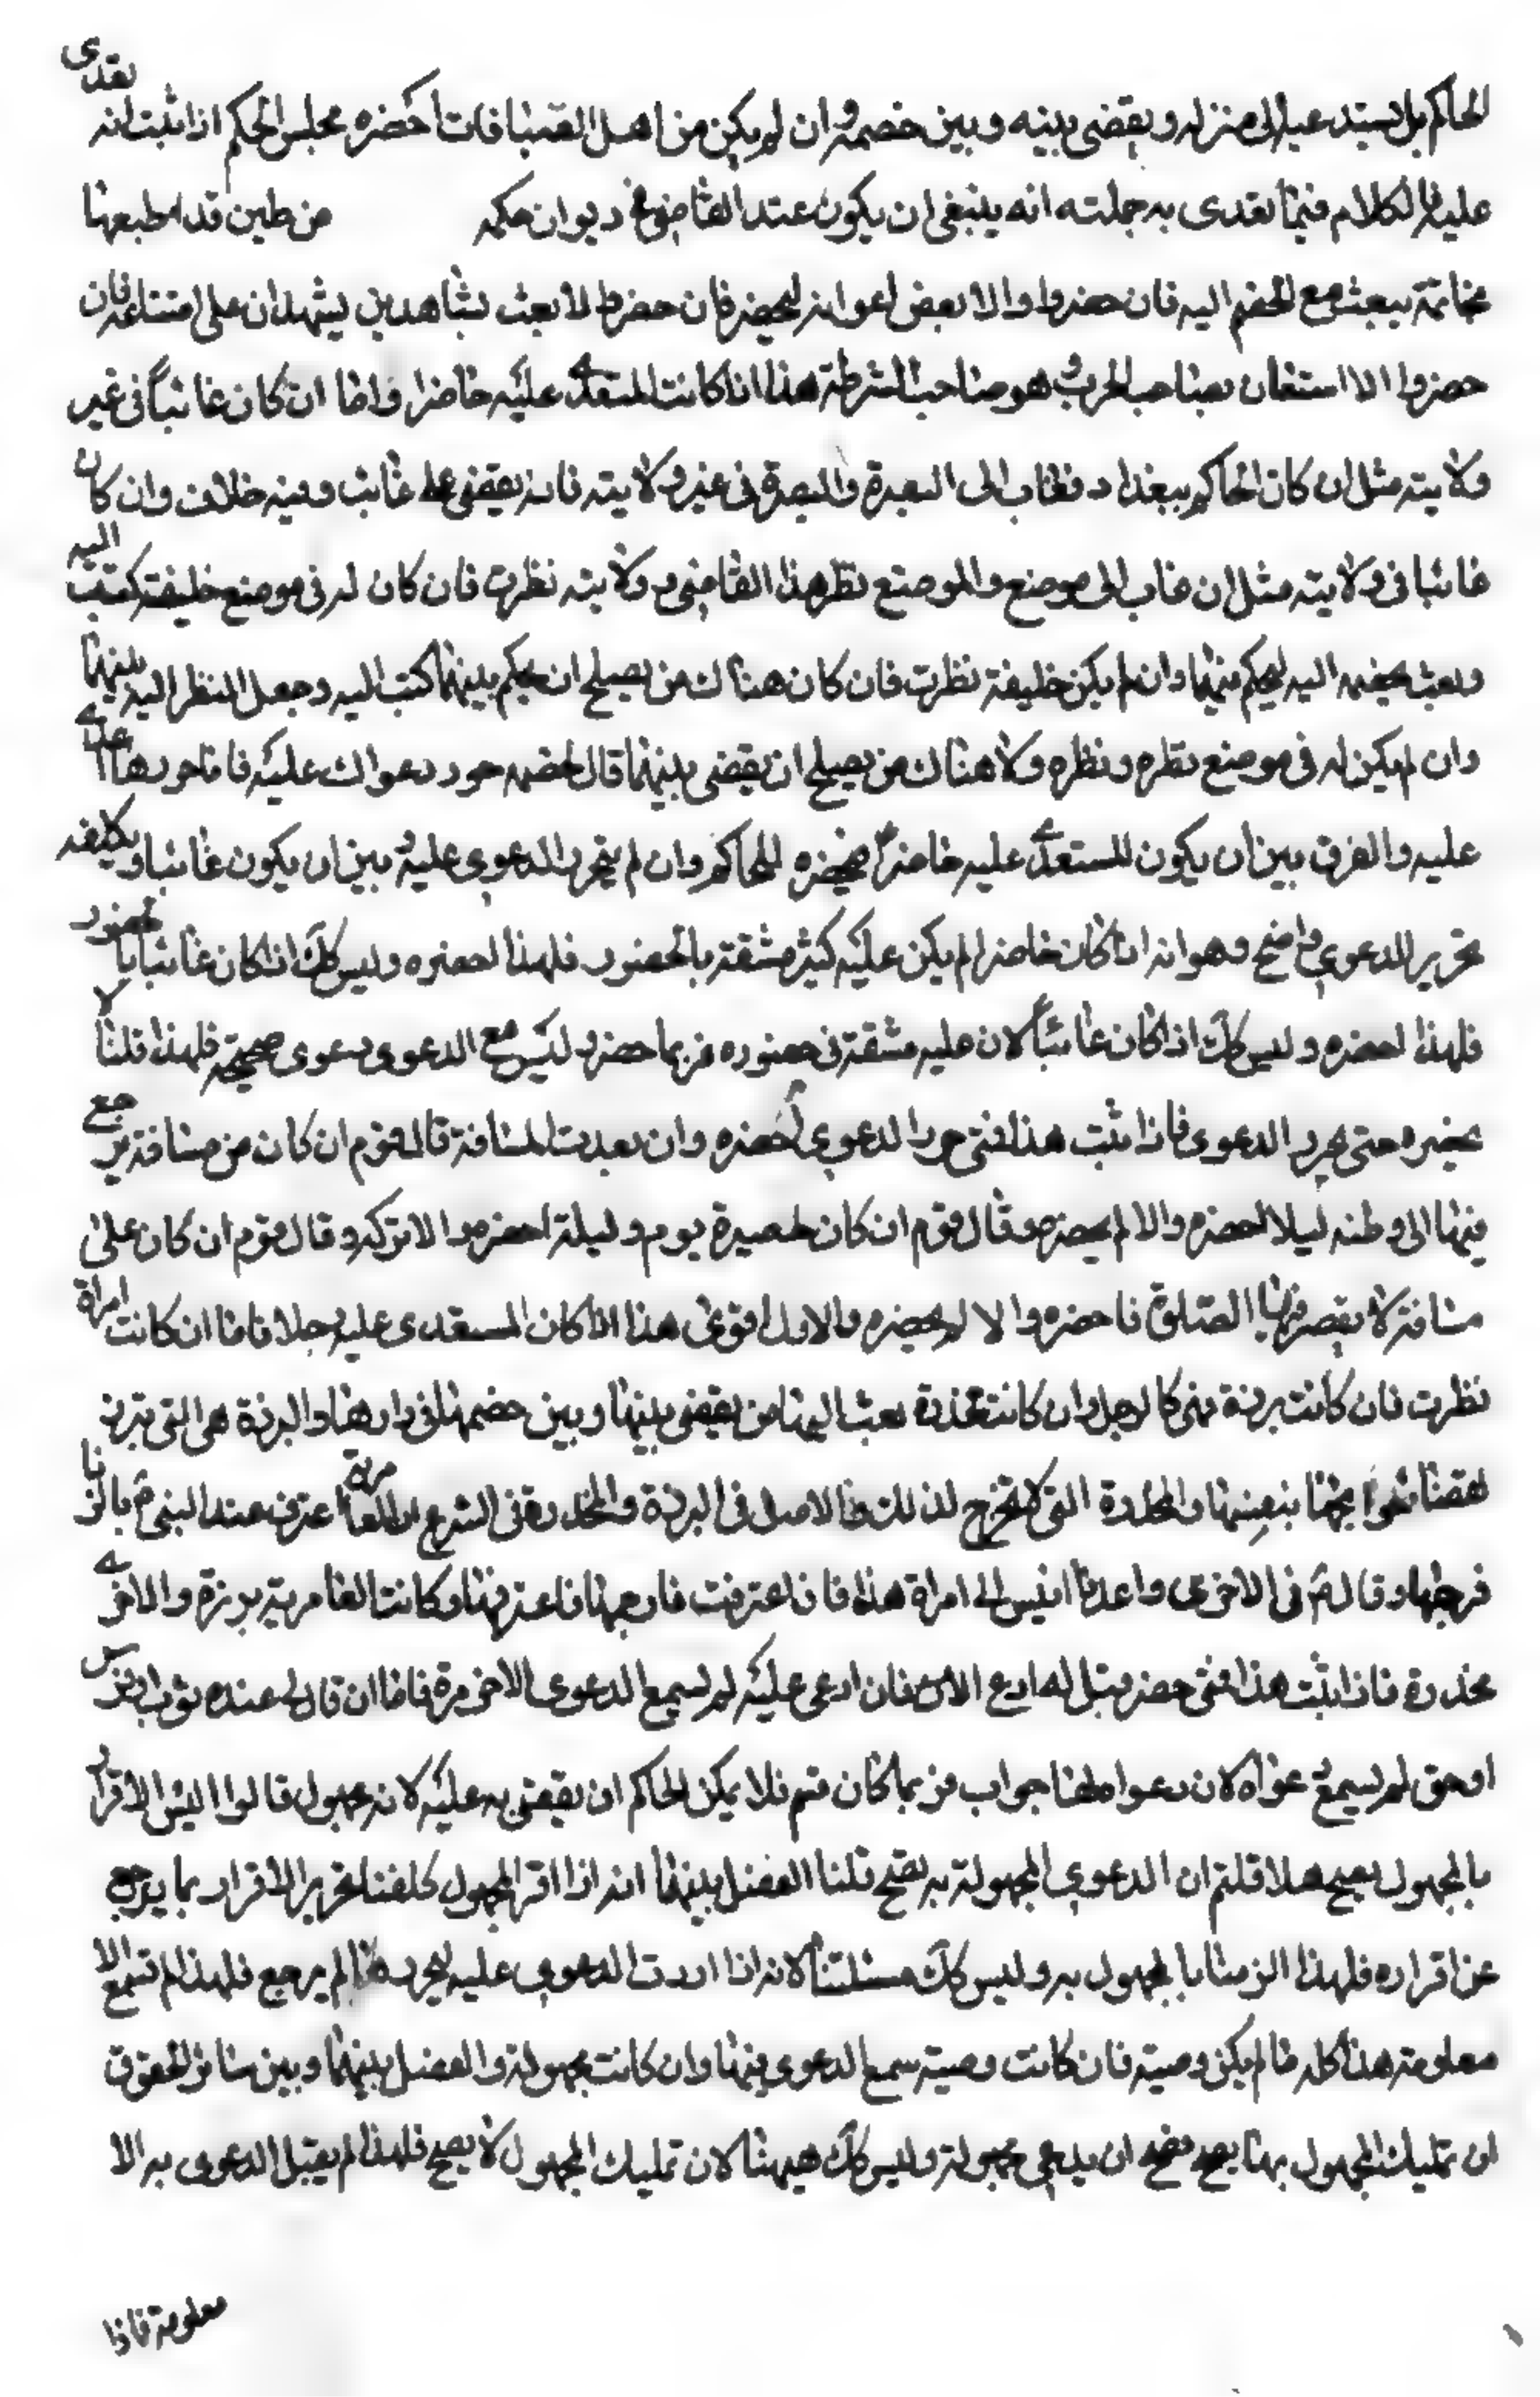 الحاكم بل يستدعيه الى منزله ويقضي بينه وبين خصمه وان لم يكن من اهل الصيانات احضره مجلس الحكم اذا ثبت انه يعدى
عليه فالكلام فيما يعدى به جملته انه ينبغي ان يكون عند القاضي في ديوان حكمه من طين قد طبعها
بخاتمة يبعث مع الخصم اليه فان حضر والا بعض اعوانه ليحضر فان حضر والا بعث بشاهدين يشهدان على امتناعه فان
حضر والا استعان بصاحب الحرب وهو صاحب الشرطة هذا اذا كانت المستعدى عليه حاضرا واما ان كان غائبا في غير
ولايته مثل ان كان الحاكم ببغداد فغاب الى البصرة والبصرة في غير ولايته فانه يقضي على غائب وفيه خلاف وان كان
غائبا في ولايته مثل ان غاب الى موضع والموضع نظر هذا القاضي وولايته نظرت فان كان له في موضع خليفة كتب اليه
وبعث بخصمه اليه ليحكم بينهما وان لم يكن خليفة نظرت فان كان هناك من يصلح ان يحكم بينهما كتب اليه وجعل النظر اليه بينهما
وان لم يكن له في موضع نظره ونظره ولا هناك من يصلح ان يقضي بينهما قال لخصمه حرر دعواك عليه فاذا حررها اعدى
عليه والفرق بين ان يكون المستعدى عليه حاضرا فيحضره الحاكم وان لم يحرر الدعوى عليه وبين ان يكون غائبا وتكليفه
تحرير الدعوى واضح وهو انه اذا كان حاضرا لم يكن عليه كثير مشقة بالحضور فلهذا احضره وليس كك اذا كان غائبا بالحضور
فلهذا احضره وليس كك اذا كان غائبا لان عليه مشقة في حضوره فربما حضر وليس مع الدعوى دعوى صحيحة فلهذا قلنا لا
يحضره حتى يحرر الدعوى فاذا ثبت هذا فمتى حرر الدعوى احضره وان بعدت المسافة قال قوم ان كان من مسافة يرجع
فيها الى وطنه ليلا احضره والا لم يحضره وقال قوم ان كان على مسيرة يوم وليلة احضره والا تركه وقال قوم ان كان على
مسافة لا يقصر فيها الصلوة احضره والا لم يحضره والاول اقوى هذا اذا كان المستعدى عليه رجلا فاما ان كانت امراة
نظرت فان كانت برزة فهي كالرجل وان كانت مخدرة بعث اليها من يقضي بينها وبين خصمها في دارها والبرزة هي التي تبرز
لقضاء حوائجها بنفسها والمخدرة التي لا تخرج لذلك والاصل في البرزة والمخدرة في الشرع ان الغامرية اعترف عند النبي ع بالزنا
فرجمها وقال ع في الاخرى واغد يا انيس الى امراة هذا فان اعترفت فارجمها فاعترفها وكانت الغامرية برزة والاخرى
مخدرة فاذا ثبت هذا فمتى حضر قيل له ادع الان فان ادعى عليه لم يسمع الدعوى الا محررة فاما ان قال لي عنده ثوب او فرس
او حق لم يسمع دعواه لان دعواه لها جواب فربما كان نعم فلا يمكن الحاكم ان يقضي به عليه لانه مجهول قالوا اليس الاقرار
بالمجهول يصح هلا قلتم ان الدعوى المجهولة به يصح قلنا الفضل بينهما انه اذا اقر بالمجهول كلفناه تحرير الاقرار بما يرجع
عن اقراره فلهذا الزمناه بالمجهول به وليس كك مسئلتنا لانه اذا اردت الدعوى عليه ليحرر لم يرجع فلهذا لم تسمع الا
معلومة هذا كله ما لم يكن وصية فان كانت وصية سمع الدعوى فيها وان كانت مجهولة والفضل بينها وبين سائر الحقوق
ان تمليك المجهول بها يصح فصح ان يدعى مجهولة وليس كك هيهنا لان تمليك المجهول لا يصح فلهذا لم يقبل الدعوى به الا
معلومة فاذا